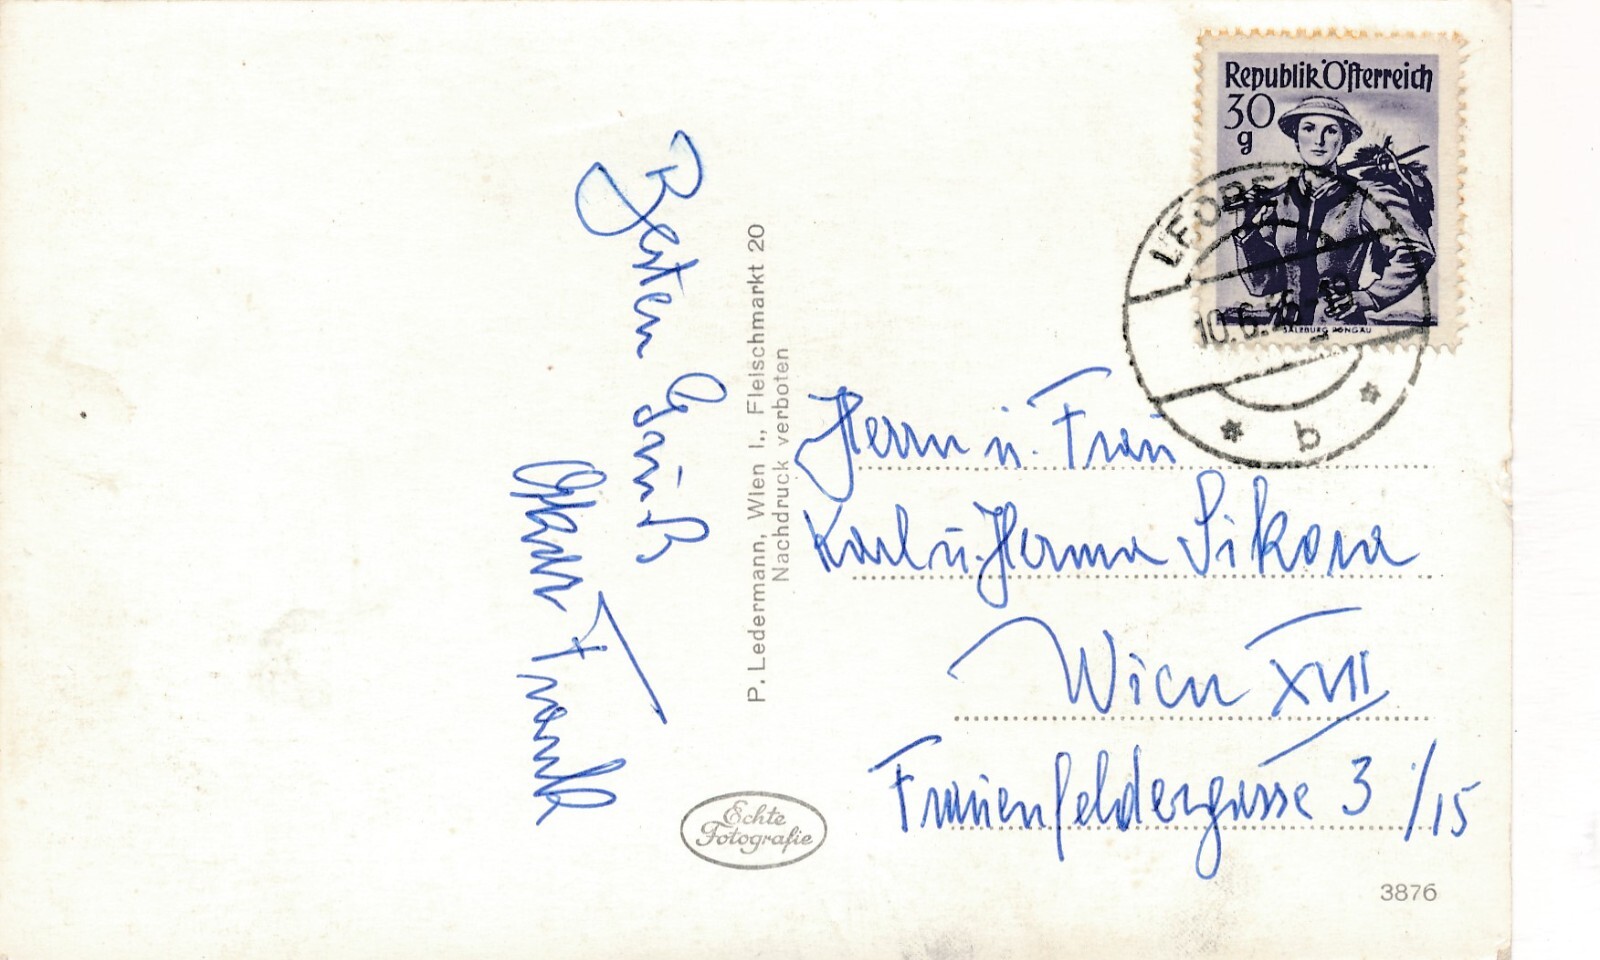 Besten Gruß
Oskar Frank
P. Ledermann, Wien I., Fleischmarkt 20
Nachdruck verboten
Echte
Fotografie
Republik Österreich
30
g
SALZBURG PONGAU
LEOBEN
10.6.
b
Herrn u. Frau
Karl u. Herma Sikora
Wien XVII
Frauenfeldergasse 3 /15
3876